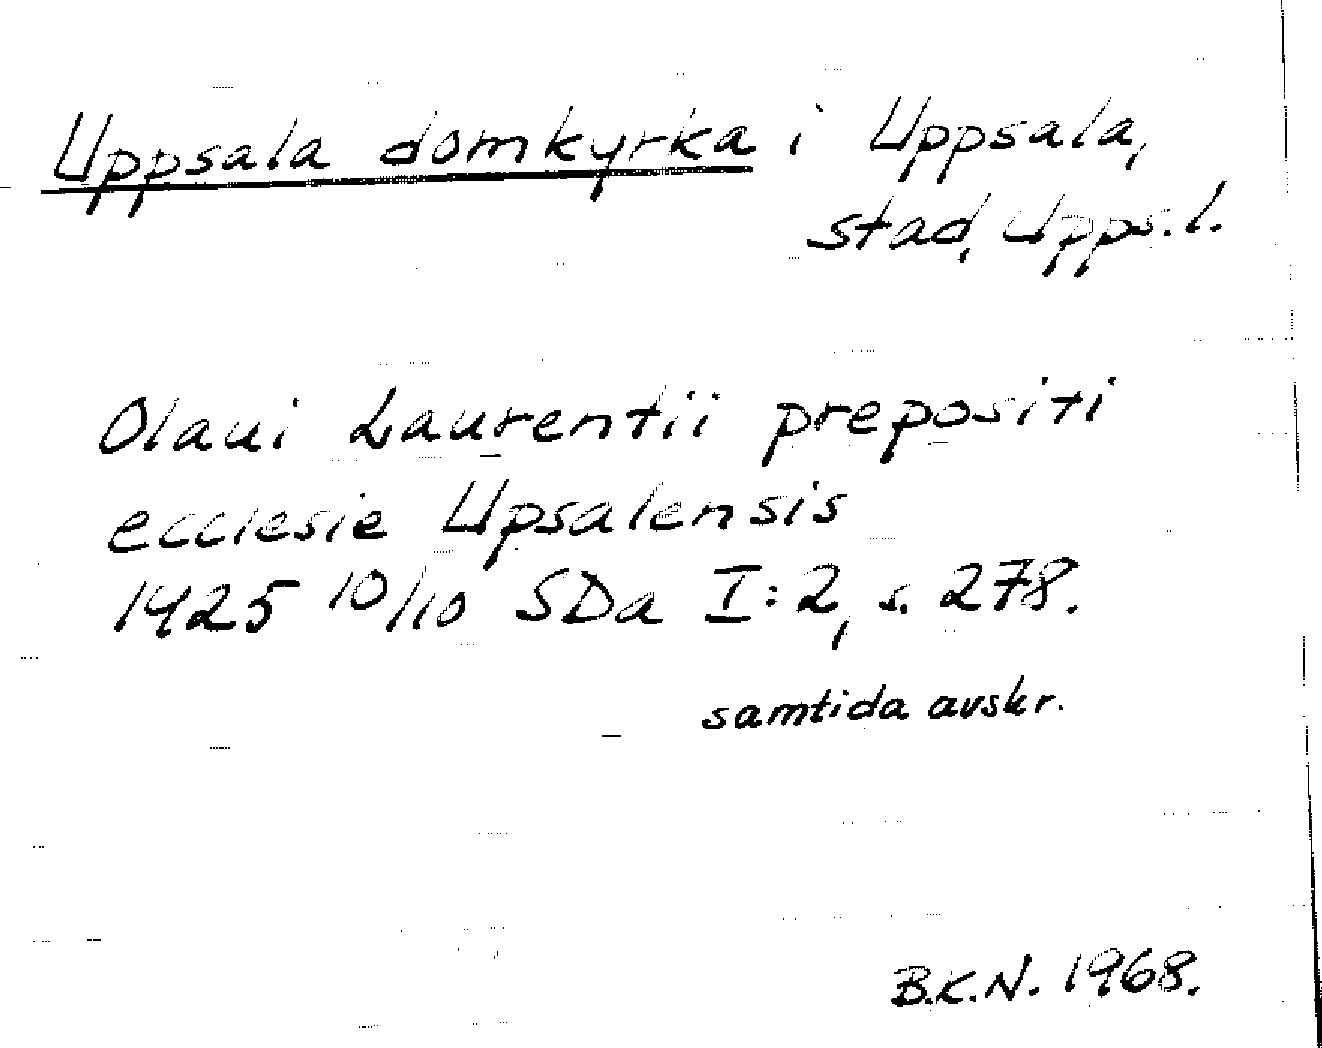 Uppsala domkyrka i Uppsala,
stad, Upps.l.
Olaui Laurentii prepositi
ecclesie Upsalensis
1425 10/10 SDa I:2, s. 278.
samtida avskr.
B.K.N. 1968.